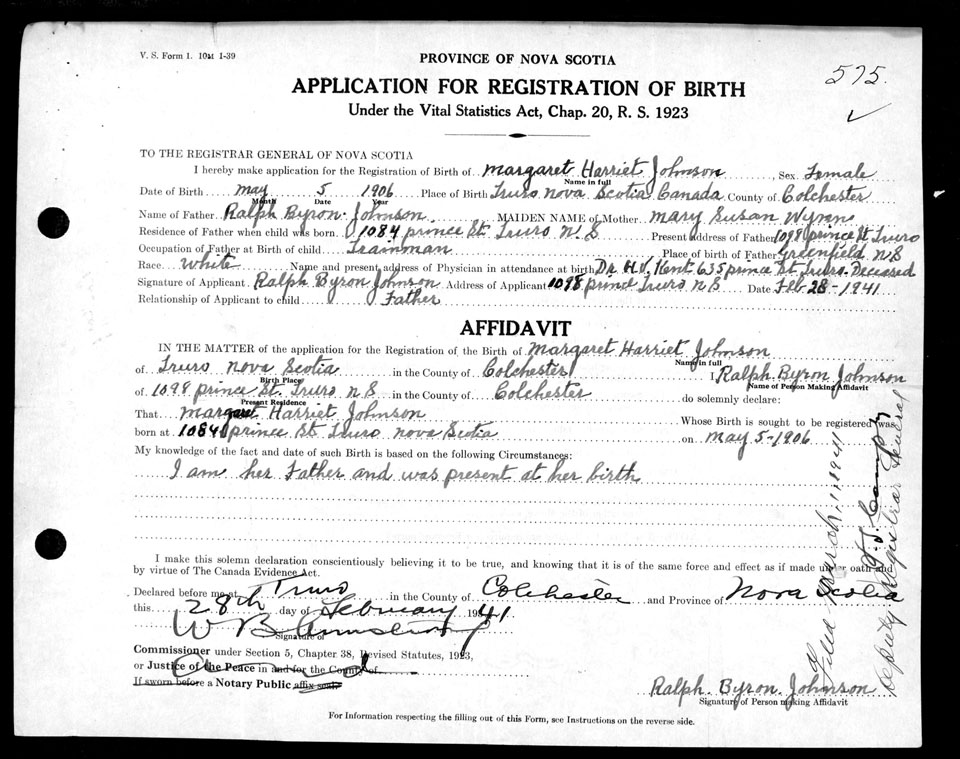 V. S. Form 1. 10M 1-39
PROVINCE OF NOVA SCOTIA
575.
APPLICATION FOR REGISTRATION OF BIRTH
Under the Vital Statistics Act, Chap. 20, R. S. 1923
TO THE REGISTRAR GENERAL OF NOVA SCOTIA
I hereby make application for the Registration of Birth of Margaret Harriet Johnson, Sex Female
Name in full
Date of Birth May 5 1906 Place of Birth Truro Nova Scotia Canada County of Colchester
Month Date Year
Name of Father Ralph Byron Johnson MAIDEN NAME of Mother Mary Susan Wynn
Residence of Father when child was born 1084 prince St. Truro N.S Present Address of Father 1098 prince St Truro
Occupation of Father at Birth of child Trainman Place of Birth of Father Greenfield, N S
Race White Name and present address of Physician in attendance at birth Dr. H.V. Kent 635 prince St. Truro. Deceased
Signature of Applicant Ralph Byron Johnson Address of Applicant 1098 prince Truro N S Date Feb 28-1941
Relationship of Applicant to child Father
AFFIDAVIT
IN THE MATTER of the application for the Registration of the Birth of Margaret Harriet Johnson
Name in full
of Truro Nova Scotia in the County of Colchester I Ralph Byron Johnson
Birth Place Name of Person Making Affidavit
of 1098 prince St. Truro N S in the County of Colchester do solemnly declare:
Present Residence
That Margaret Harriet Johnson Whose Birth is sought to be registered was
born at 1084 prince St Truro Nova Scotia on May 5-1906
My knowledge of the fact and date of such Birth is based on the following Circumstances:
I am her Father and was present at her birth
I make this solemn declaration conscientiously believing it to be true, and knowing that it is of the same force and effect as if made under oath and
by virtue of The Canada Evidence Act.
Declared before me at Truro in the County of Colchester and Province of Nova Scotia
this 28th day of February 1941
W B Armstrong
Signature of
Commissioner under Section 5, Chapter 38, Revised Statutes, 1923,
or Justice of the Peace in and for the County of
If sworn before a Notary Public affix seal.
Ralph Byron Johnson
Signature of Person making Affidavit
For Information respecting the filling out of this Form, see Instructions on the reverse side.
Filed March, 1, 1941
Deputy Registrar General